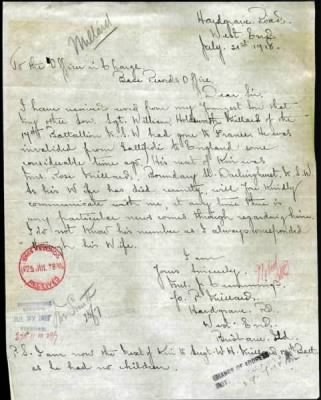 Millard
Hardgrave Road.
West End
July 21st 1918.
To the Officer in Charge
Base Records Office
Dear Sir,
I have receive word from my youngest son that
my other son, Sgt. William Holdsworth Millard of the
19th Battalion N.S.W had gone to France. He was
invalided from Gallipoli to England some
considerable time ago. His next of Kin was
Mrs. Rose Millard, Boundary St. Darlinghurst, N.S.W
As his Wife has died recently will you kindly
communicate with me, if any time there is
any particular news comes through regarding him.
I do not know his number as I always corresponded
through his Wife.
I am
Yours Sincerely,
Mrs. J. Cummings
J. R. Millard,
Hardgrave Rd.
West End.
Brisbane Qld.
P.S. I am now the Next of Kin to Sergt. W. H. Millard Batt
as he had no children.
RECEIVED
CHANGE OF ADDRESS